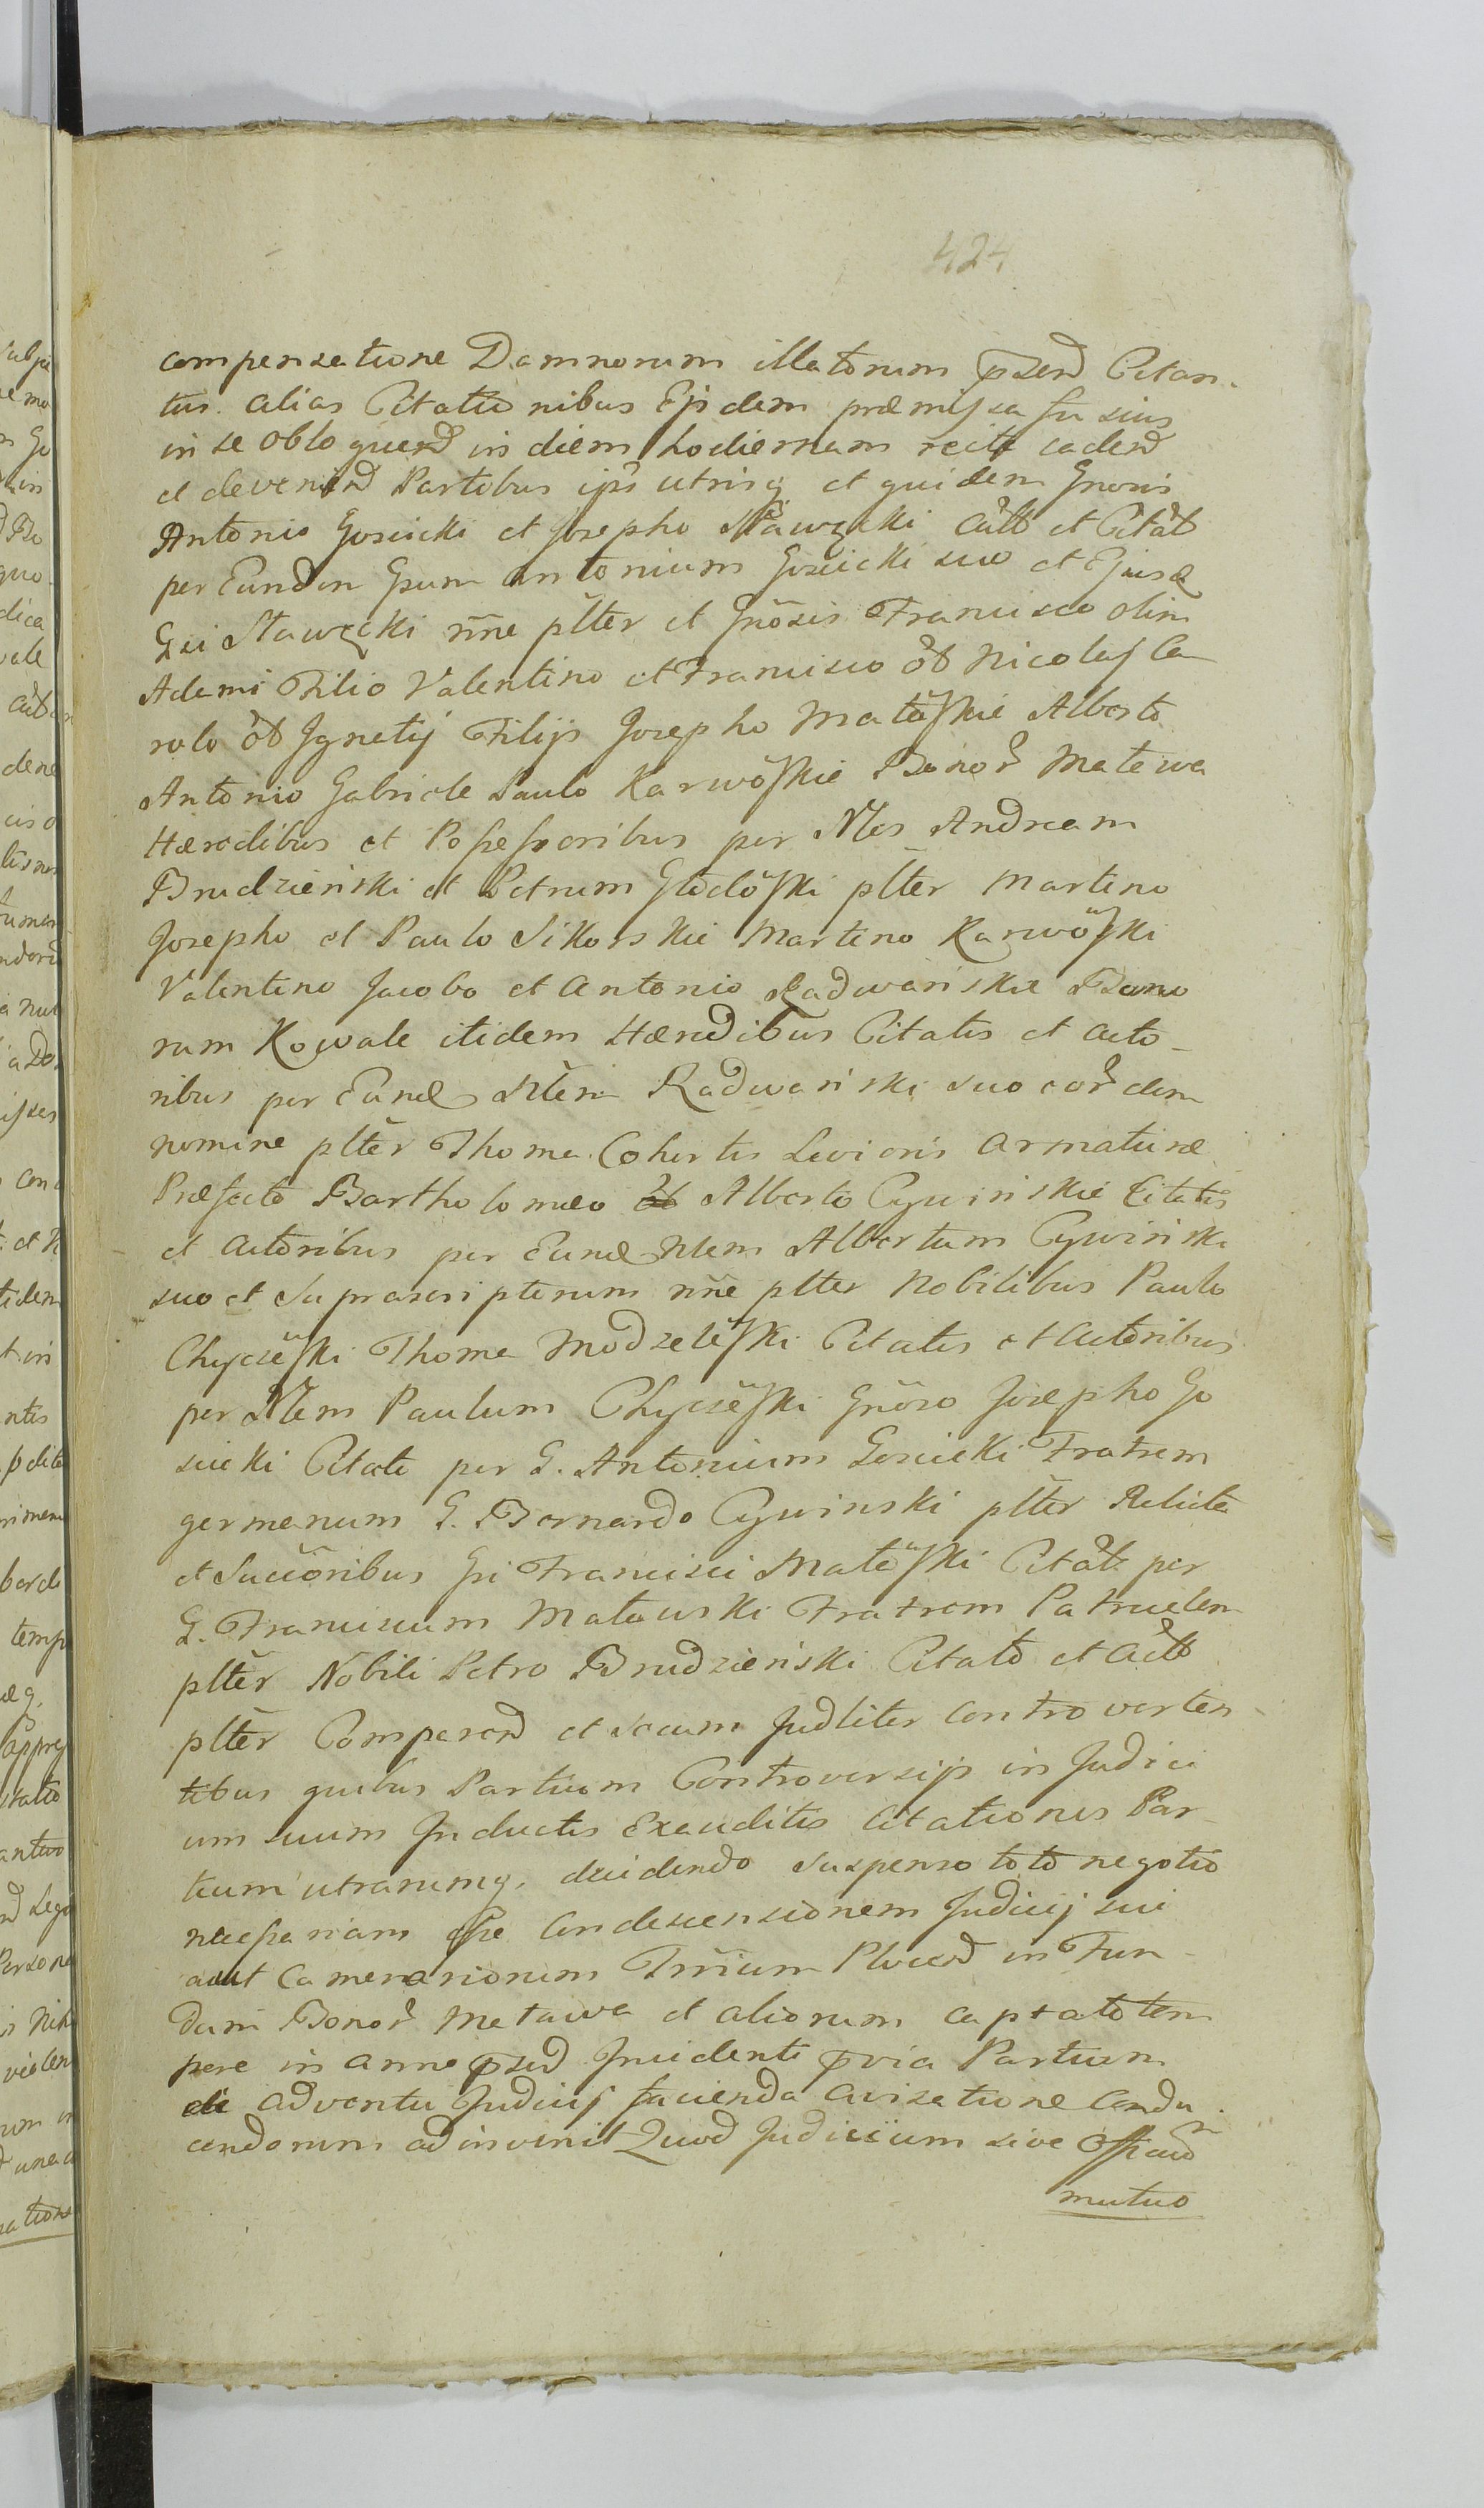 424
compensatione Damnorum illatorum pzend Citan-
tur. alias Citationibus Ejsdem præmissa fusius
in se obloquend in diem hodiernam recte cadend
et devenind Partibus ips utrisq. et quidem Gnosis
Antonio Goscicki et Josepho Sławęcki Actt et Citat
per Eundm Gsum Antonium Goscicki suo et Ejusd
Gsi Sławęcki nne plter et Gnosis Francisco olim
Adami Filio Valentino et Francisco ol Nicolai Ca
rolo ol Ignatij Filijs Josepho Matoskie Alberto
Antonio Gabriele Paulo Karwoskie Bonor Matawa
Hæredibus et Possessoribus per Nles Andream
Brudzieński et Petrum Głodoski plter Martino
Josepho et Paulo Sikorskie Martino Karwoski
Valentino Jacobo et Antonio Radwańskie Bono
rum Kowale itidem Hæredibus Citatis et Acto-
ribus per Eund Nlem Radwański suo eordem
nomine plter Thoma Cohortis Levioris armaturæ
Præfecto Bartholomæo et Alberto Cywińskie Citatis
et Actoribus per Eund Nlem Albertum Cywiński
suo et suprascriptorum nne plter Nobilibus Paulo
Chyczeski Thoma Modzeleski Citatis et Actoribus
per Nlem Paulum Chyczeski Gnoso Josepho Go
scicki Citato per G. Antonium Gosicki Fratrem
germanum G. Bernardo Cywinski plter Relicta
et Succoribus Gsi Francisci Matoski Citat per
G. Franciscum Matowski Fratrem Patruelem
plter Nobili Petro Brudzieński Citato et Actt
plter Comparend et secum Judliter controverten-
tibus quibus Partium Controversijs in Judici
um suum Inductis Exauditis Citationes Par-
tium utrarumq. decidendo suspenso toto negotio
necessariam esse Condescensionem Judicij sui
aut Camerariorum Trrium Plocend in Fun-
dum Bonor Matawa et aliorum captato tem
pore in anno pzed Incidenti pvia Partium
de adventu Judicij facienda avisatione condu-
cendorum adinvenit Quod Judicium sive
mutuo